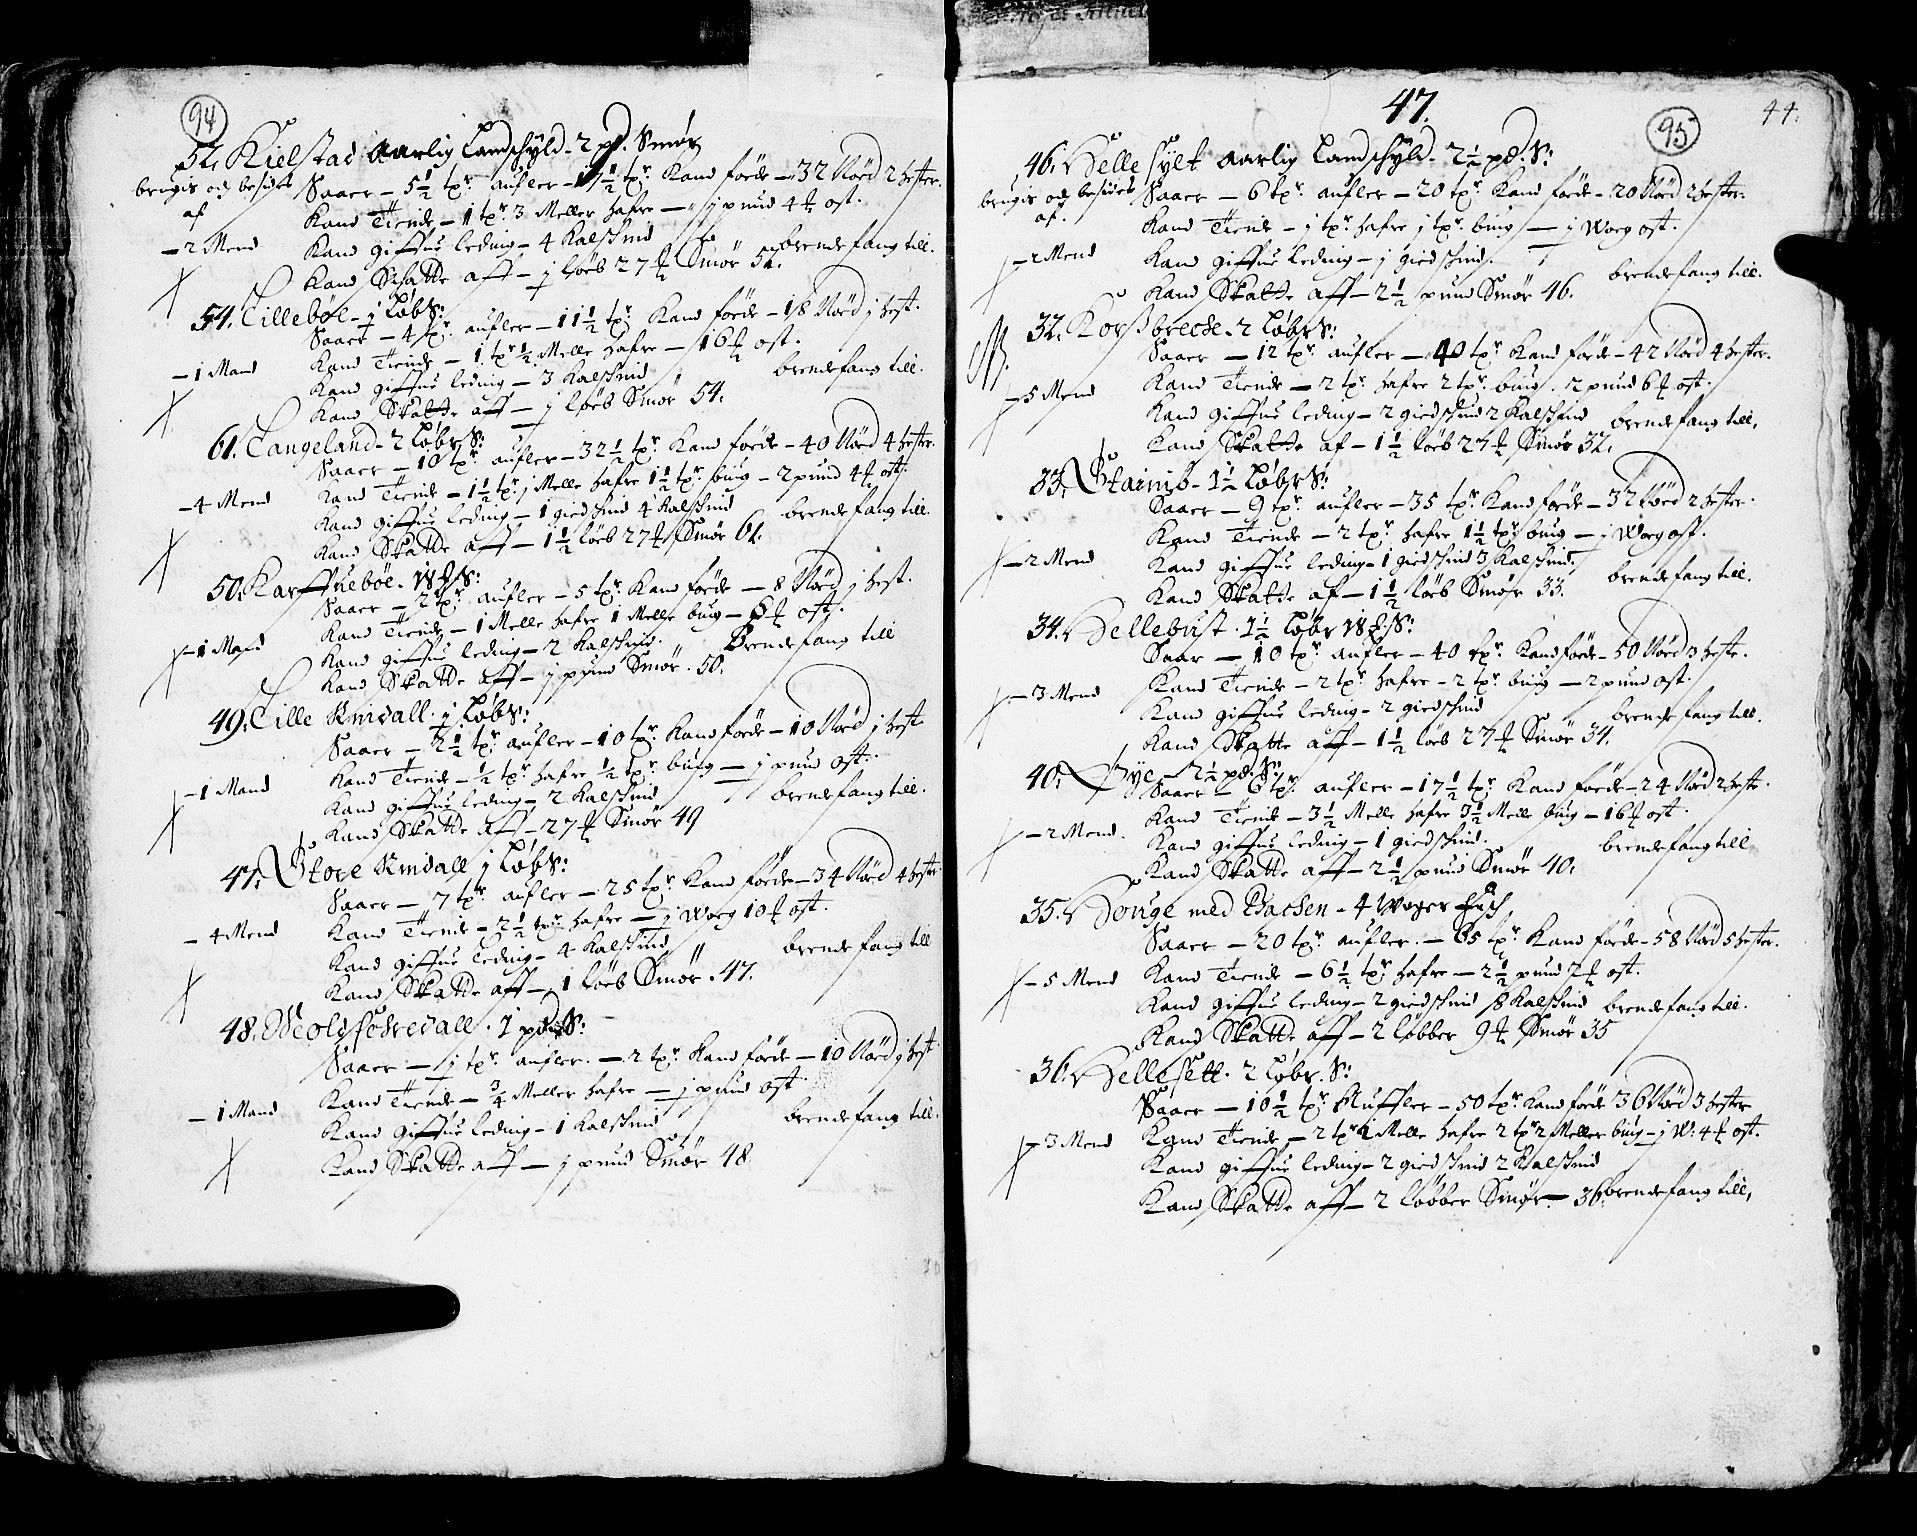 94
52. Kielstad Aarlig Landschyld - 2 pd. Smör
brugis och besides Saaer - 5½ tyr. aufler - 17½ tyr. Kand föede - 32 Nörd 2 hester.
af Kand Tiende - 1 tyr. 3 Meller hafre - j pund 4 ℔ ost.
- 2 Mend Kand giffue leding - 4 Kalfskind
brendefang till.
Kand Schatte aff - j löeb 27 ℔ Smör 52.
54. Lilleböe - j Løb S:
Saaer - 4 tyr. aufler - 11½ tyr. Kand föede - 18 Nörd j hest.
- 1 Mand Kand Tiende - 1 tyr ½ Melle hafre - 16 ℔ ost.
Kand giffue leding - 3 Kalfskind
brendefang till.
Kand Skatte aff - j löeb Smör 54.
61. Langeland - 2 Løbr S:
Saaer - 10 tyr. aufler - 32½ tyr. Kand föede - 40 Nörd 4 hester.
- 4 Mend Kand Tiende - 1½ tyr. j Melle hafre 1½ tyr. biug - 2 pund 4 ℔ ost.
Kand giffue leding - 1 giedskind 4 Kalfskind brendefang till.
Kand Skatte aff - 1½ löeb 27 ℔ Smör 61.
50. Karffueböe. 18 ℔ S:
Saaer - 2 tyr. aufler - 5 tyr. Kand föede - 8 Nörd j hest.
- 1 Mand Kand Tiende - 1 Melle hafre 1 Melle biug - 6 ℔ ost.
Kand giffue leding - 2 Kalfskind. Brendefang till
Kand Skatte aff - j pund Smör. 50.
49. Lille Knivall. j Løbr:
Saaer - 2½ tyr. aufler - 10 tyr. Kand föede - 10 Nörd j hest
- 1 Mand Kand Tiende - ½ tyr. hafre ½ tyr. biug - j pund ost.
Kand giffue leding - 2 Kalfskind brendefang till.
Kand Skatte aff - 27 ℔ Smör 49
47. Store Knidall j Løbr:
Saaer - 7 tyr. aufler - 25 tyr. Kand föede - 34 Nörd 4 hester
- 4 Mend Kand Tiende - 2½ tyr. hafre - j Woeg 10 ℔ ost.
Kand giffue leding - 4 Kalfskind brendefang till
Kand Skatte aff - 1 löeb Smör. 47.
48. - 1 pd. S:
Saaer - j tyr. aufler. - 2 tyr. Kand föede - 10 Nörd j hest
- 1 Mand Kand Tiende - ¾ Meller hafre - j pund ost
Kand giffue leding - 1 Kalfskind brendefang till.
Kand Skatte aff - j pund Smör 48
47.
95
44.
46. Hellesylt Aarlig Landschyld - 2½ pd. S:
brugis och besides Saaer - 6 tyr. aufler - 20 tyr. Kand föede - 20 Nörd 2 hester.
af. Kand Tiende - j tyr. hafre j tyr. biug - j Woeg ost.
- 2 Mend Kand giffue leding - j giedskind.
brendefang till.
Kand Skatte aff - 2½ pund Smör 46.
32. Korsbrecke - 2 Løbr S:
Saaer - 12 tyr. aufler - 40 tyr. Kand föede - 42 Nörd 4 hester.
- 5 Mend Kand Tiende - 2 tyr. hafre 2 tyr. biug. 2 pund 6 ℔ ost.
Kand giffue leding - 2 giedskind 2 Kalfskind brendefang till.
Kand Skatte af - 1½ löeb 27 ℔ Smör 32.
33. Stainis - 1½ Løbr S:
Saaer - 9 tyr. aufler - 35 tyr. Kand föede - 32 Nörd 2 hester.
Kand Tiende - 2 tyr. hafre 1½ tyr. biug - j Woeg ost.
- 2 Mend Kand giffue leding - 1 giedskind 3 Kalfskind.
brendefang till.
Kand Skatte af - 1½ löeb Smör 33.
34. Hellebust. 1½ Løbr 18 ℔ S:
Saar - 10 tyr. aufler - 40 tyr. Kand föede - 50 Nörd 3 heste.
- 3 Mend Kand Tiende - 2 tyr. hafre - 2 tyr. biug - 2 pund ost.
Kand giffue leding - 2 giedskind brendefang till.
Kand Skatte aff - 1½ löeb 27 ℔ Smör 34.
40. Øye - 2½ pd. S:
Saaer - 6 tyr. aufler - 17½ tyr. Kand föede - 24 Nörd 2 heste.
- 2 Mend. Kand Tiende - 3½ Melle hafre 3½ Melle biug - 16 ℔ ost.
Kand giffue leding - 1 giedskind. brendefang till
Kand Skatte aff - 2½ pund Smör 40.
35. Houge med Backen - 4 Woger Fisch
Saaer - 20 tyr. aufler. - 65 tyr. Kand föede - 58 Nörd 5 hester.
- 5 Mend Kand Tiende - 6½ tyr. hafre - 2½ pund 2 ℔ ost.
Kand giffue leding - 2 giedskind 8 Kalfskind brendefang till.
Kand Skatte aff - 2 löbber 9 ℔ Smör 35
36. Hellesett. 2 Løbr. S:
Saaer - 10½ tyr. Auffler - 50 tyr. Kand föede 36 Nörd 3 hester
- 3 Mend Kand Tiende - 2 tyr 2 Melle hafre 2 tyr 2 Meller biug - j W: 4 ℔ ost.
Kand giffue leding - 2 giedskind 2 Kalfskind
Kand Skatte aff - 2 löbber Smör - 36. brendefang till.